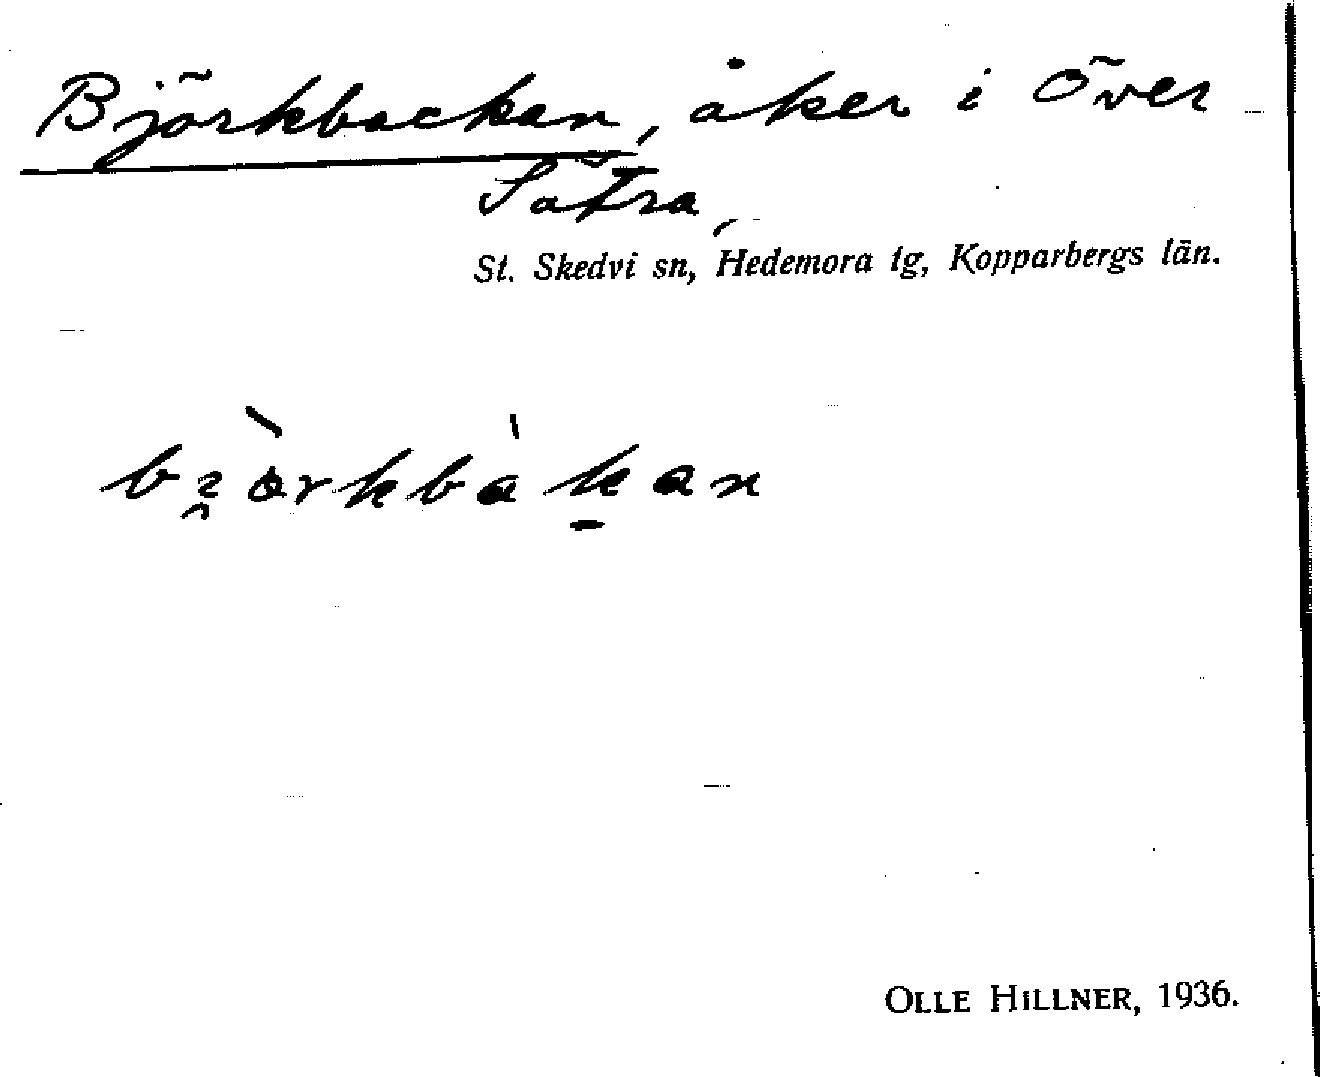 Björkbackan, åker i Över
Sätra,
St. Skedvi sn, Hedemora tg, Kopparbergs län.
bi̯òrkbàk̠an
OLLE HILLNER, 1936.